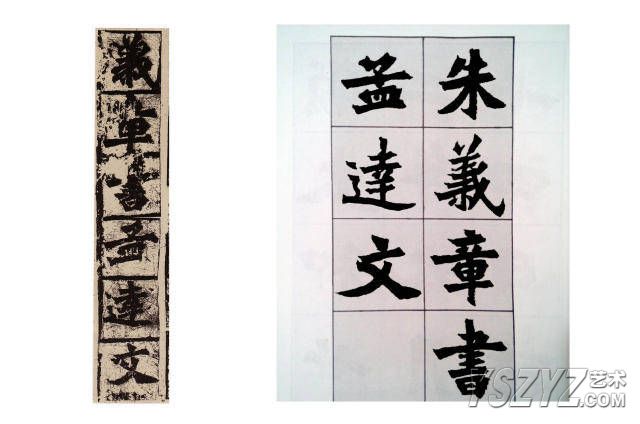 義章書孟達文
朱義章書
孟達文
YSZYZ艺术
.COM